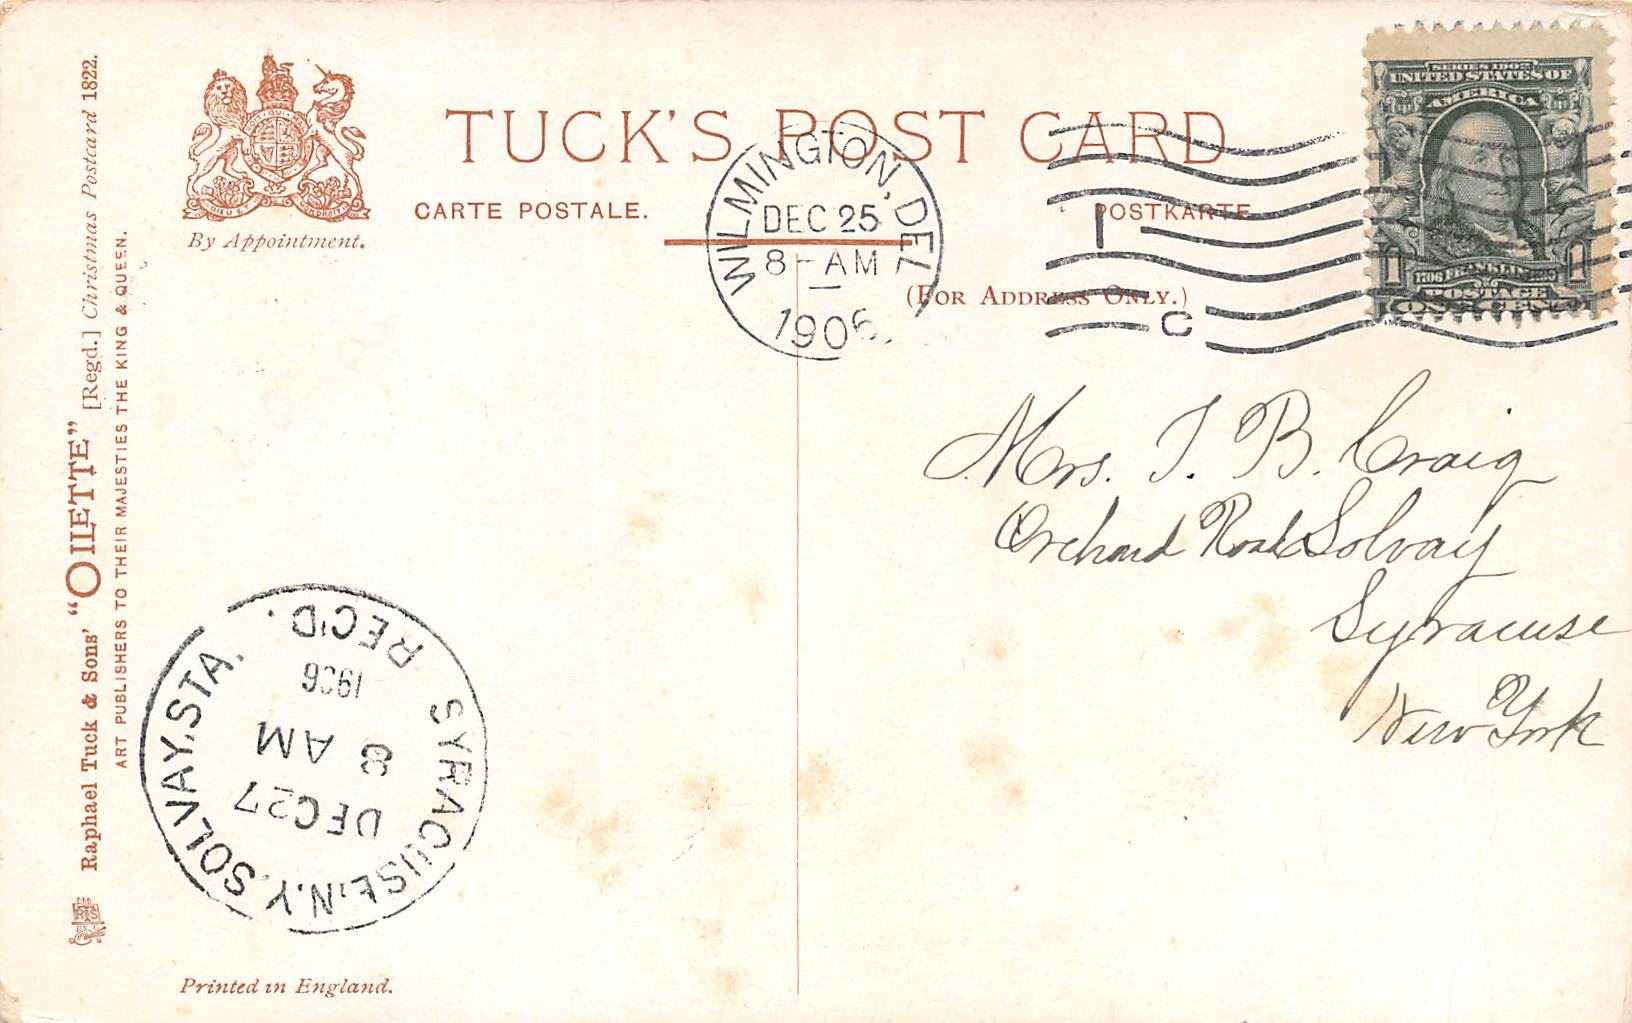 Raphael Tuck & Sons' "OILETTE" [Regd.] Christmas Postcard 1822.
ART PUBLISHERS TO THEIR MAJESTIES THE KING & QUEEN.
By Appointment.
TUCK'S POST CARD
CARTE POSTALE.
POSTKARTE
(FOR ADDRESS ONLY.)
WILMINGTON, DEL
DEC 25
8-AM
1906
C
SERIES 1902
UNITED STATES OF
AMERICA
1 1
1706 FRANKLIN 1790
POSTAGE
ONE CENT
Mrs. J. B. Craig
Orchard Road Solvay
Syracuse
New York
SYRACUSE, N.Y. SOLVAY. STA.
DEC 27
8 AM
1906
REC'D.
Printed in England.